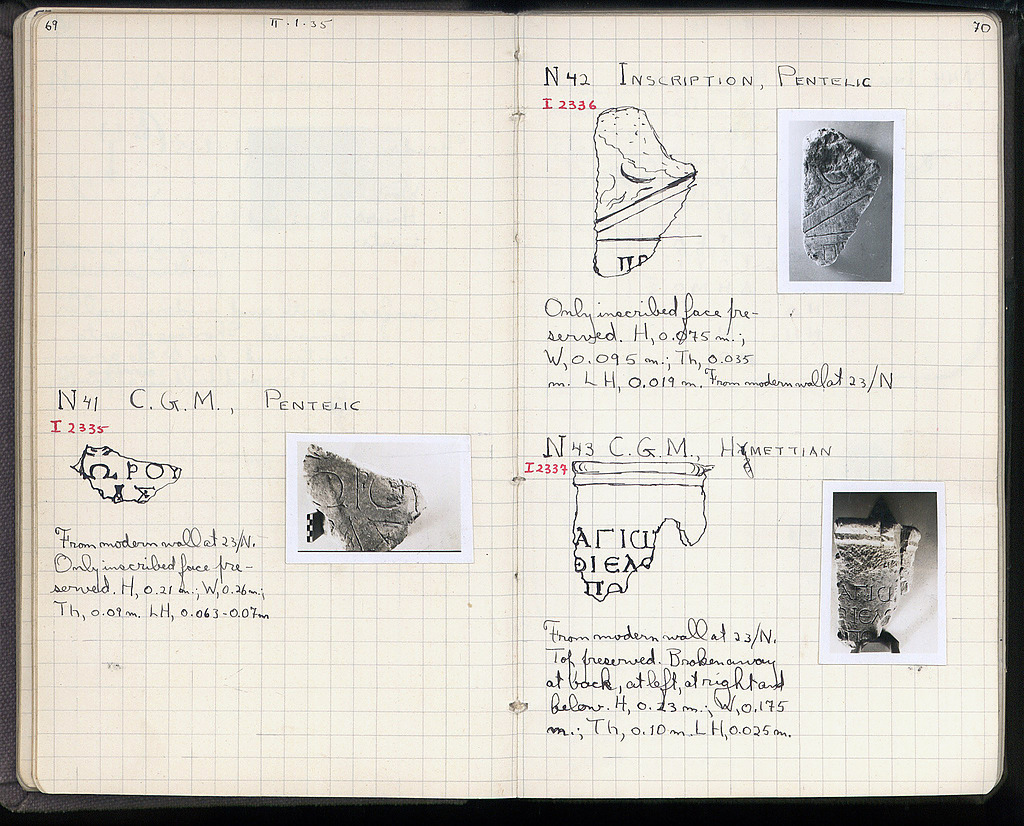 69
II · 1 · 35
N 41 C. G. M., PENTELIC
I 2335
ΩΡΟΥ
From modern wall at 23/N.
Only inscribed face pre-
served. H, 0.21 m.; W, 0.26 m.;
Th, 0.09 m. LH, 0.063-0.07m
70
N 42 INSCRIPTION, PENTELIC
I 2336
ΠΡ
Only inscribed face pre-
served. H, 0.075 m.;
W, 0.095 m.; Th, 0.035
m. LH, 0.019 m. From modern wall at 23/N
N 43 C. G. M., HYMETTIAN
I 2337
ΑΓΙΩ
ΙΕΛ
Π
From modern wall at 23/N.
Top preserved. Broken away
at back, at left, at right and
below. H, 0.23 m.; W, 0.175
m.; Th, 0.10 m. LH, 0.025 m.